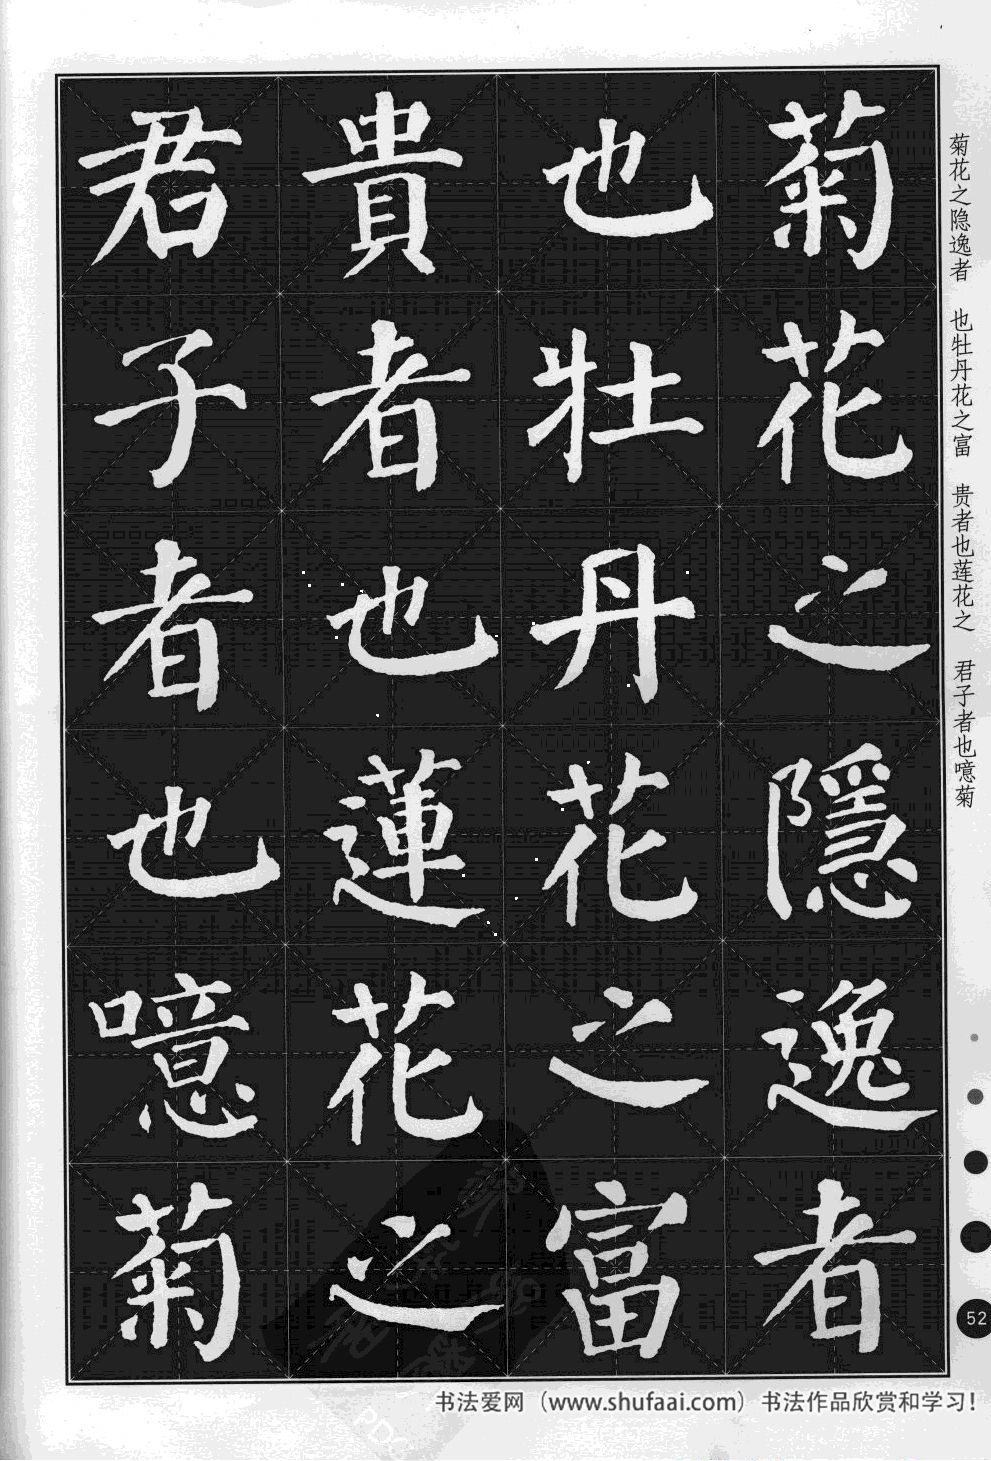 菊花之隱逸者
也牡丹花之富
貴者也蓮花之
君子者也噫菊
菊花之隐逸者 也牡丹花之富 贵者也莲花之 君子者也噫菊
52
书法爱网（www.shufaai.com）书法作品欣赏和学习！